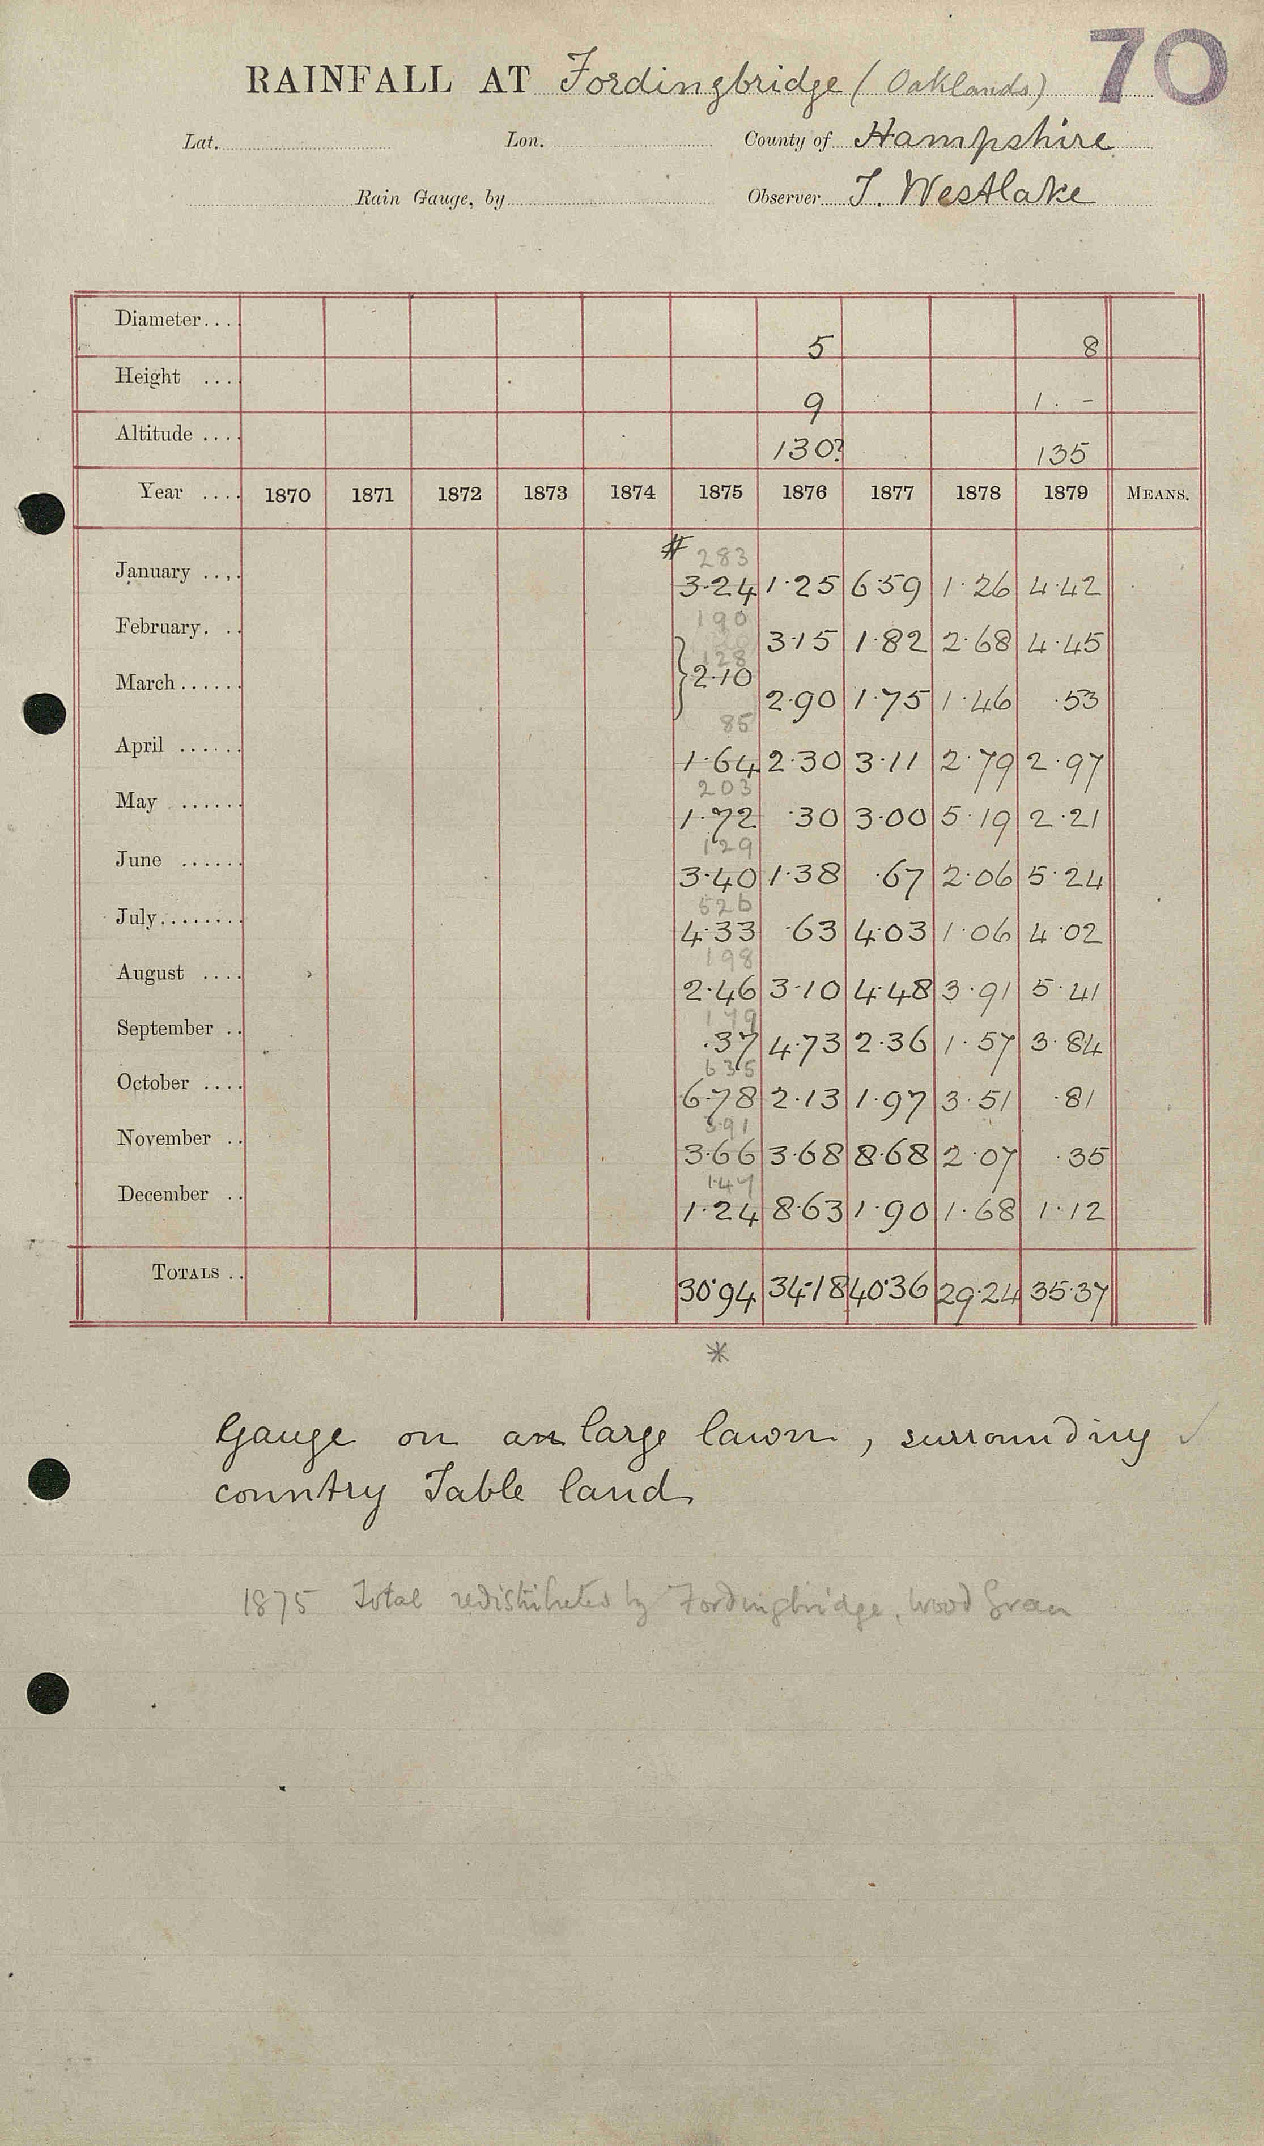 70
RAINFALL AT Fordingbridge (Oaklands)
Lat. Lon. County of Hampshire
Rain Gauge, by Observer T. Westlake
Diameter... 5 8
Height .... 9 1 . -
Altitude .... 130? 135
Year .... 1870 1871 1872 1873 1874 1875 1876 1877 1878 1879 MEANS.
# 283
January .... 3.24 1.25 6.59 1.26 4.42
190
February. .. 3.15 1.82 2.68 4.45
128
} 2.10
March...... 2.90 1.75 1.46 .53
85
April ...... 1.64 2.30 3.11 2.79 2.97
203
May ...... 1.72 .30 3.00 5.19 2.21
129
June ...... 3.40 1.38 .67 2.06 5.24
526
July........ 4.33 .63 4.03 1.06 4.02
198
August .... 2.46 3.10 4.48 3.91 5.41
179
September .. .37 4.73 2.36 1.57 3.84
635
October .... 6.78 2.13 1.97 3.51 .81
391
November .. 3.66 3.68 8.68 2.07 .35
147
December .. 1.24 8.63 1.90 1.68 1.12
TOTALS .. 30.94 34.18 40.36 29.24 35.37
*
Gauge on an large lawn, surrounding
country Table land
1875 Total redistributed by Fordingbridge, Wood Green